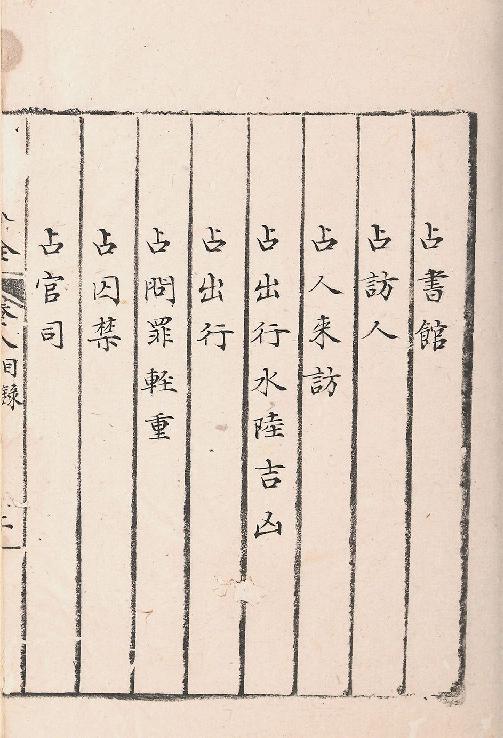 占書館
占訪人
占人来訪
占出行水陸吉凶
占出行
占問罪軽重
占囚禁
占官司
全
卷八目錄